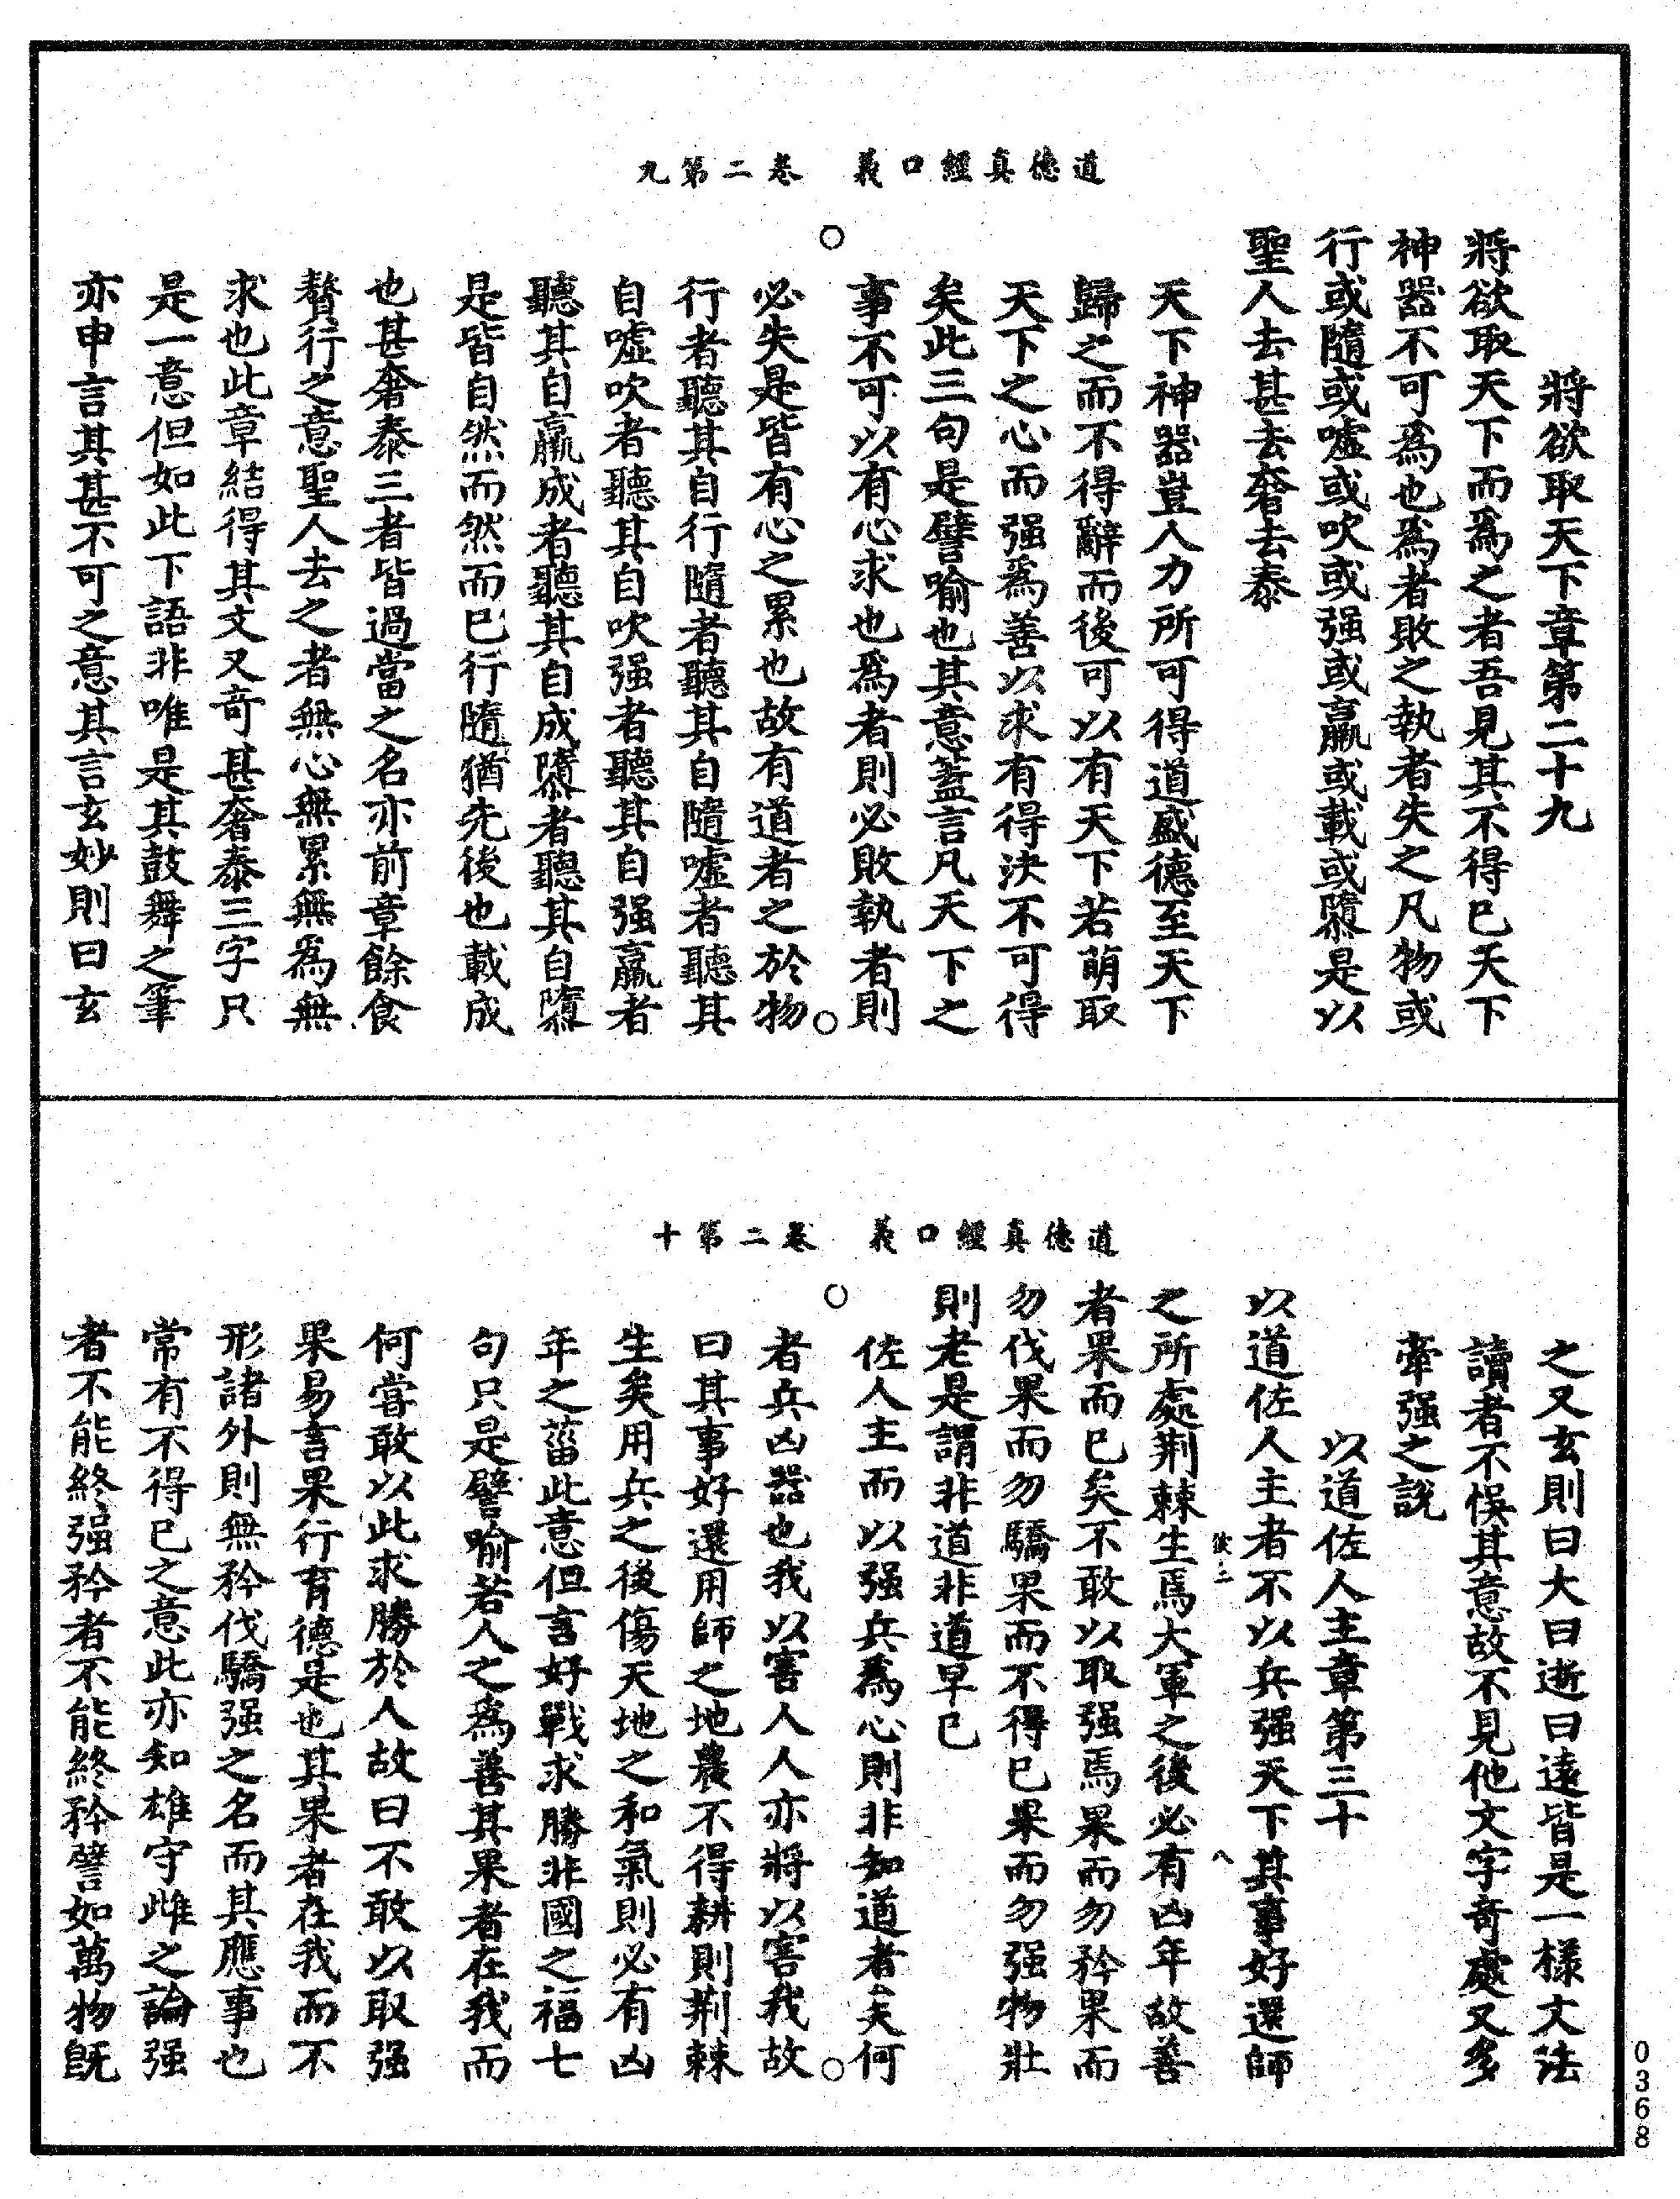 道德真經口義　卷二第九
將欲取天下章第二十九
將欲取天下而爲之者吾見其不得已天下
神器不可爲也爲者敗之執者失之凡物或
行或隨或噓或吹或强或羸或載或隳是以
聖人去甚去奢去泰
天下神器豈人力所可得道盛德至天下
歸之而不得辭而後可以有天下若萌取
天下之心而强爲善以求有得決不可得
矣此三句是譬喻也其意蓋言凡天下之
事不可以有心求也爲者則必敗執者則
必失是皆有心之累也故有道者之於物
行者聽其自行隨者聽其自隨噓者聽其
自噓吹者聽其自吹强者聽其自强羸者
聽其自羸成者聽其自成隳者聽其自隳
是皆自然而然而已行隨猶先後也載成
也甚奢泰三者皆過當之名亦前章餘食
贅行之意聖人去之者無心無累無爲無
求也此章結得其文又奇甚奢泰三字只
是一意但如此下語非唯是其鼓舞之筆
亦申言其甚不可之意其言玄妙則曰玄
道德真經口義　卷二第十
之又玄則曰大曰逝曰遠皆是一樣文法
讀者不悮其意故不見他文字奇處又多
牽强之說
以道佐人主章第三十
以道佐人主者不以兵强天下其事好還師
之所處荆棘生焉大軍之後必有凶年故善
者果而已矣不敢以取强焉果而勿矜果而
勿伐果而勿驕果而不得已果而勿强物壯
則老是謂非道非道早已
佐人主而以强兵爲心則非知道者矣何
者兵凶器也我以害人人亦將以害我故
曰其事好還用師之地農不得耕則荆棘
生矣用兵之後傷天地之和氣則必有凶
年之菑此意但言好戰求勝非國之福七
句只是譬喻若人之爲善其果者在我而
何嘗敢以此求勝於人故曰不敢以取强
果易言果行育德是也其果者在我而不
形諸外則無矜伐驕强之名而其應事也
常有不得已之意此亦知雄守雌之論强
者不能終强矜者不能終矜譬如萬物旣
0368